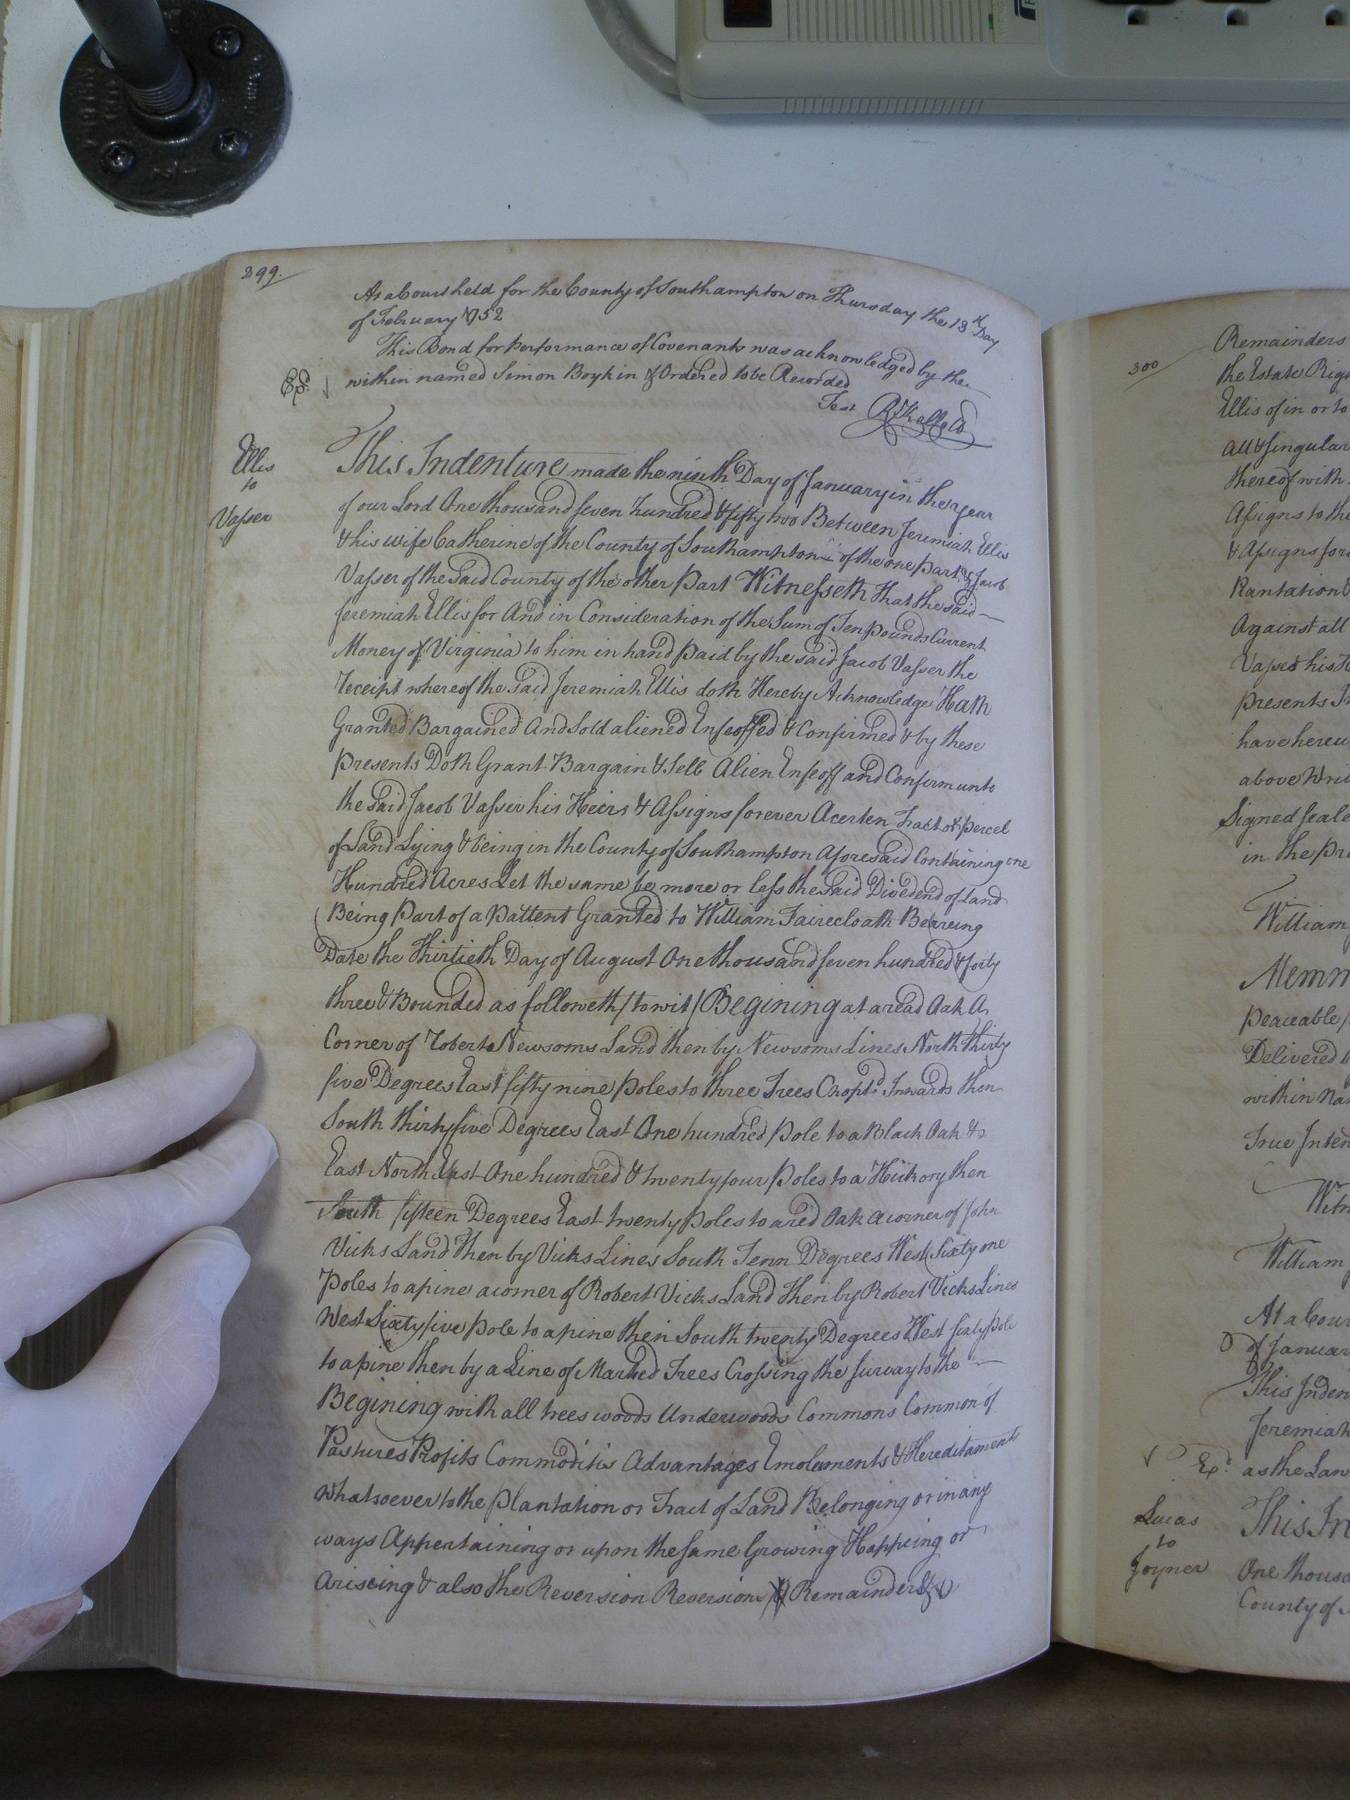 299.
At a Court held for the County of Southampton on Thursday the 13th Day
of February 1752
This Bond for Performance of Covenants was acknowledged by the
within named Simon Boykin & Ordered to be Recorded
Test
Ellis
to
Vasser
This Indenture made the ninth Day of January in the year
of our Lord One thousand seven hundred & fifty two Between Jeremiah Ellis
& his wife Catherine of the County of Southampton of the one part & Jacob
Vasser of the said County of the other part Witnesseth that the said
Jeremiah Ellis for And in Consideration of the Sum of Ten pounds Current
Money of Virginia to him in hand paid by the said Jacob Vasser the
receipt whereof the said Jeremiah Ellis doth Hereby Acknowledge Hath
Granted Bargained And Sold aliened Enfeoffed & Confirmed & by these
presents Doth Grant Bargain & Sell Alien Enfeoff and Confirm unto
the said Jacob Vasser his Heirs & Assigns forever A certen Tract or percel
of Land Lying & being in the County of Southampton Aforesaid Containing one
Hundred Acres Let the same be more or less the said Dividend of Land
Being Part of a Pattent Granted to William Fairecloath Beareing
Date the Thirtieth Day of August One thousand seven hundred & forty
three & Bounded as followeth / to wit / Begining at a read Oak A
Corner of Roberts Newsoms Land then by Newsoms Lines North thirty
five Degrees East fifty nine poles to three Trees Chopt. Inwards then
South thirty five Degrees East One hundred pole to a Black Oak &
East North East One hundred & twenty four poles to a Hickory then
South fifteen Degrees East twenty poles to a red Oak a corner of John
Vicks Land Then by Vicks Lines South Tenn Degrees West Sixty one
Poles to a pine a corner of Robert Vicks Land Then by Robert Vicks Lines
West Sixty five pole to a pine then South twenty Degrees West sixty pole
to a pine then by a Line of Marked Trees Crossing the survay to the
Begining with all trees woods Underwoods Commons Common of
Pastures Profits Commoditis Advantages Emoluments & Hereditaments
whatsoever to the plantation or Tract of Land Belonging or in any
ways Appertaining or upon the same Growing Happing or
Ariseing & also the Reversion Reversions Remainder &
300
Remainders
the Estate Rig
Ellis of in or to
all & singular
thereof with
Assigns to the
& Assigns for
Plantation &
Against all
Vasser his H
presents
have hereu
above Wri
Signed seale
in the pr
William
Memm
peaceable
Delivered
within Na
True Inten
Witn
William
At a Cour
of Januar
This Inden
Jeremiah
as the Law
Lucas
to
Joyner
This In
One thousa
County of